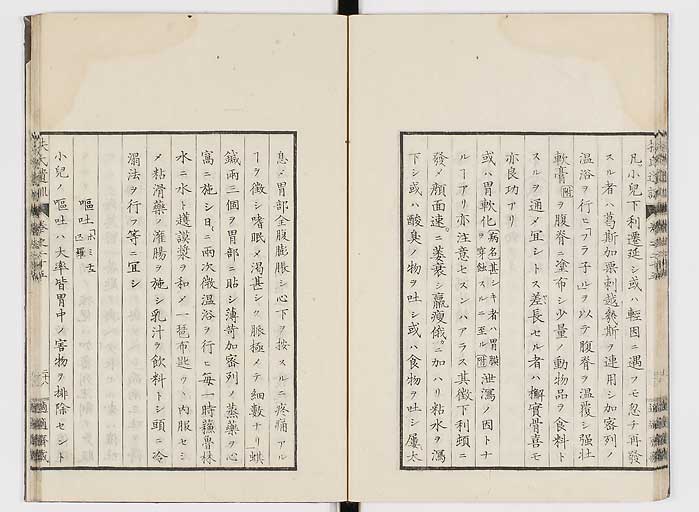 凡小兒下利遷延シ或ハ輕因ニ遇フモ忽チ再發
スル者ハ葛斯加栗刺越幾斯ヲ連用シ加密列ノ
温浴ヲ行ヒ「フラ子ル」ヲ以テ腹脊ヲ温覆シ強壮
軟膏ヲ腹脊ニ塗布シ少量ノ動物品ヲ食料ト
スルヲ通メ宜シトス差長セル者ハ槲實骨喜モ
亦良功アリ
或ハ胃軟化病名甚シキ者ハ胃膜ヲ穿蝕スルニ至ル泄瀉ノ因トナ
ルヿアリ亦注意セスンハアラス其徴下利頭ニ
發メ顔面速ニ萎衰シ羸瘦俄ニ加ハリ粘水ヲ瀉
下シ或ハ酸臭ノ物ヲ吐シ或ハ食物ヲ吐シ屢太
息メ胃部全腹膨脹シ心下ヲ按スルニ疼痛アル
ヿヲ徴シ嗜眠メ渇甚シク脈極メテ細數ナリ蜞
鍼兩三個ヲ胃部ニ貼シ薄荷加密列ノ蒸藥ヲ心
窩ニ施シ日ニ兩次微温浴ヲ行ヒ毎一時
水ニ水ト謨漿ヲ和メ一琶布匙ツヽ内服セシ
メ粘滑藥ノ灌腸ヲ施シ乳汁ヲ飲料トシ頭ニ冷
溻法ヲ行フ等ニ宜シ
嘔吐
小兒ノ嘔吐ハ大率皆胃中ノ害物ヲ排除セント